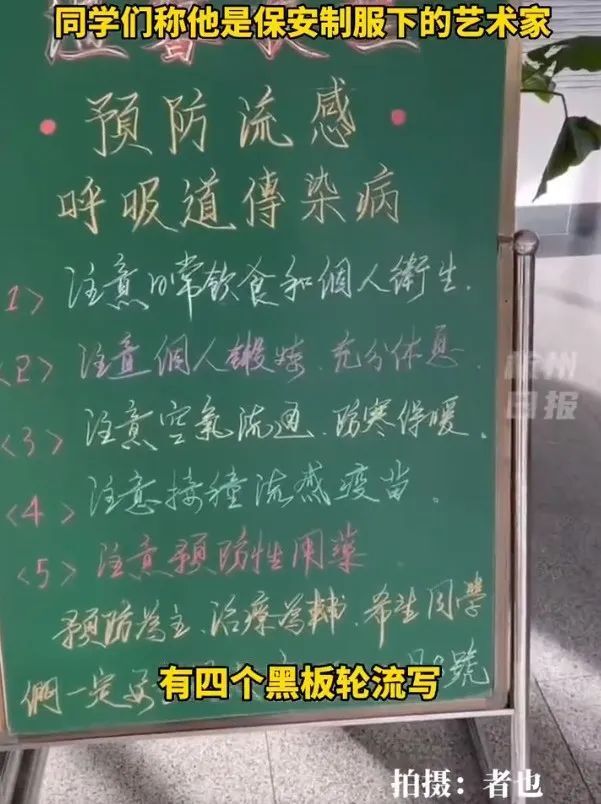 同学们称他是保安制服下的艺术家
温馨
预防流感
呼吸道傳染病
<1> 注意日常飲食和個人衛生.
<2> 注意個人鍛煉、充分休息.
<3> 注意空氣流通、防寒保暖。
<4> 注意接種流感疫苗。
<5> 注意预防性用藥
预防為主、治療為輔、希望同學
們一定要
號
有四个黑板轮流写
杭州
日报
拍摄：者也